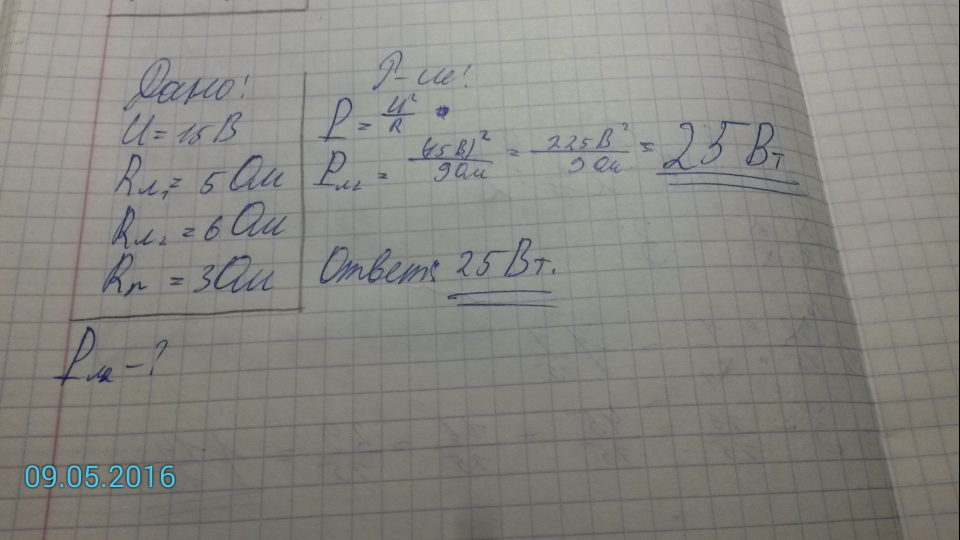 Дано:
U = 15 В
Rл₁ = 5 Ом
Rл₂ = 6 Ом
Rр = 3 Ом
Pл₂ - ?
Р-ие:
P = U²/R
Pл₂ = (15 В)²/9 Ом = 225 В²/9 Ом = 25 Вт
Ответ: 25 Вт.
09.05.2016